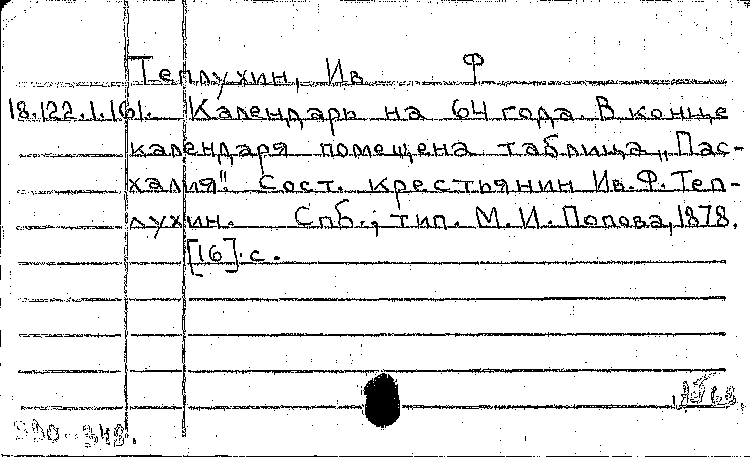 Теплухин, Ив Ф
18.122.1.161. Календарь на 64 года. В конце
календаря помещена таблица „Пас-
халия". Сост. крестьянин Ив. Ф. Теп-
лухин. Спб., тип. М. И. Попова, 1878.
[16] с.